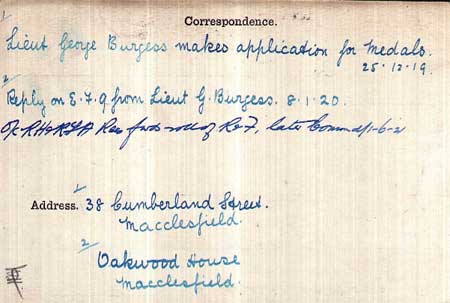 Correspondence.
1
Lieut George Burgess makes application for Medals.
25.12.19.
2
Reply on E.7.9 from Lieut G. Burgess. 8.1.20.
R.H & R.F.A fwds roll of R & F, later Commd 1-6-21
1
Address. 38 Cumberland Street.
Macclesfield.
2
Oakwood House
Macclesfield.